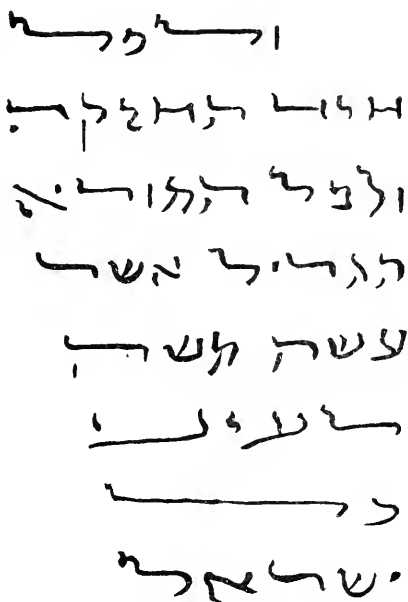 ולכל
היד החזקה
ולכל המורא
הגדול אשר
עשה משה
לעיני
כל
ישראל